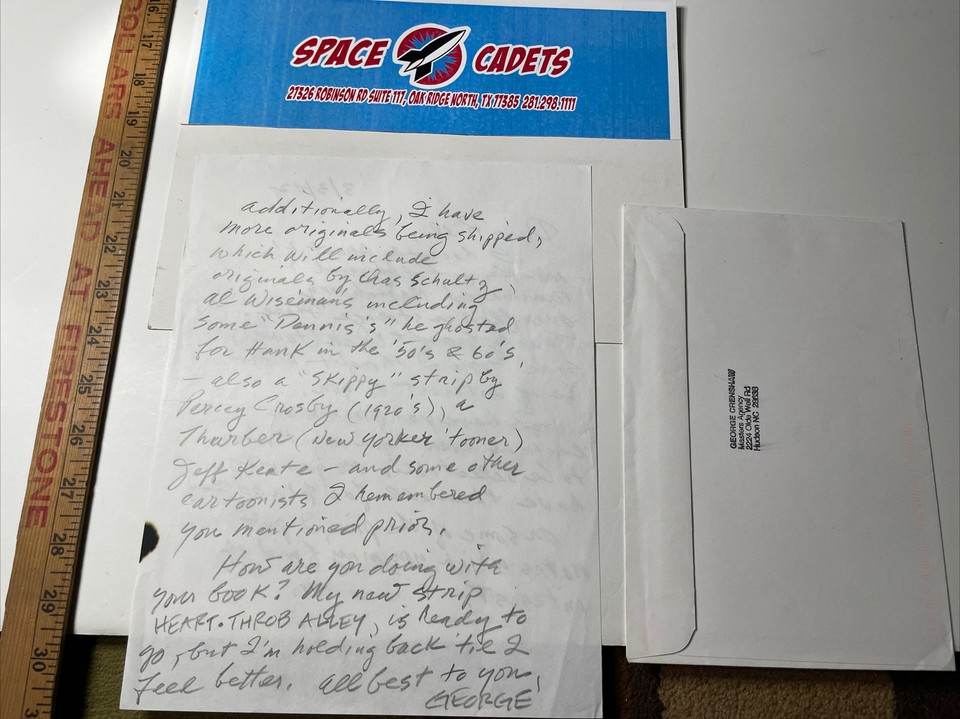 SPACE CADETS
27326 ROBINSON RD. SUITE 117, OAK RIDGE NORTH, TX 77385 281.298.1111
additionally, I have
more originals being shipped,
which will include
originals by Chas Schultz,
Al Wiseman's including
some "Dennis's" he ghosted
for Hank in the '50's & 60's,
- also a "Skippy" strip by
Percy Crosby (1920's), a
Thurber (New Yorker 'tooner)
Jeff Keate - and some other
cartoonists I remembered
you mentioned prior.
How are you doing with
your book? My new strip
HEART-THROB ALLEY, is ready to
go, but I'm holding back 'til I
feel better. All best to you,
GEORGE
GEORGE CRENSHAW
Masters Agency
2224 Olde Well Rd
Hudson NC 28638
DOLLARS AHEAD AT FIRESTONE
16
17
18
19
20
21
22
23
24
25
26
27
28
29
30